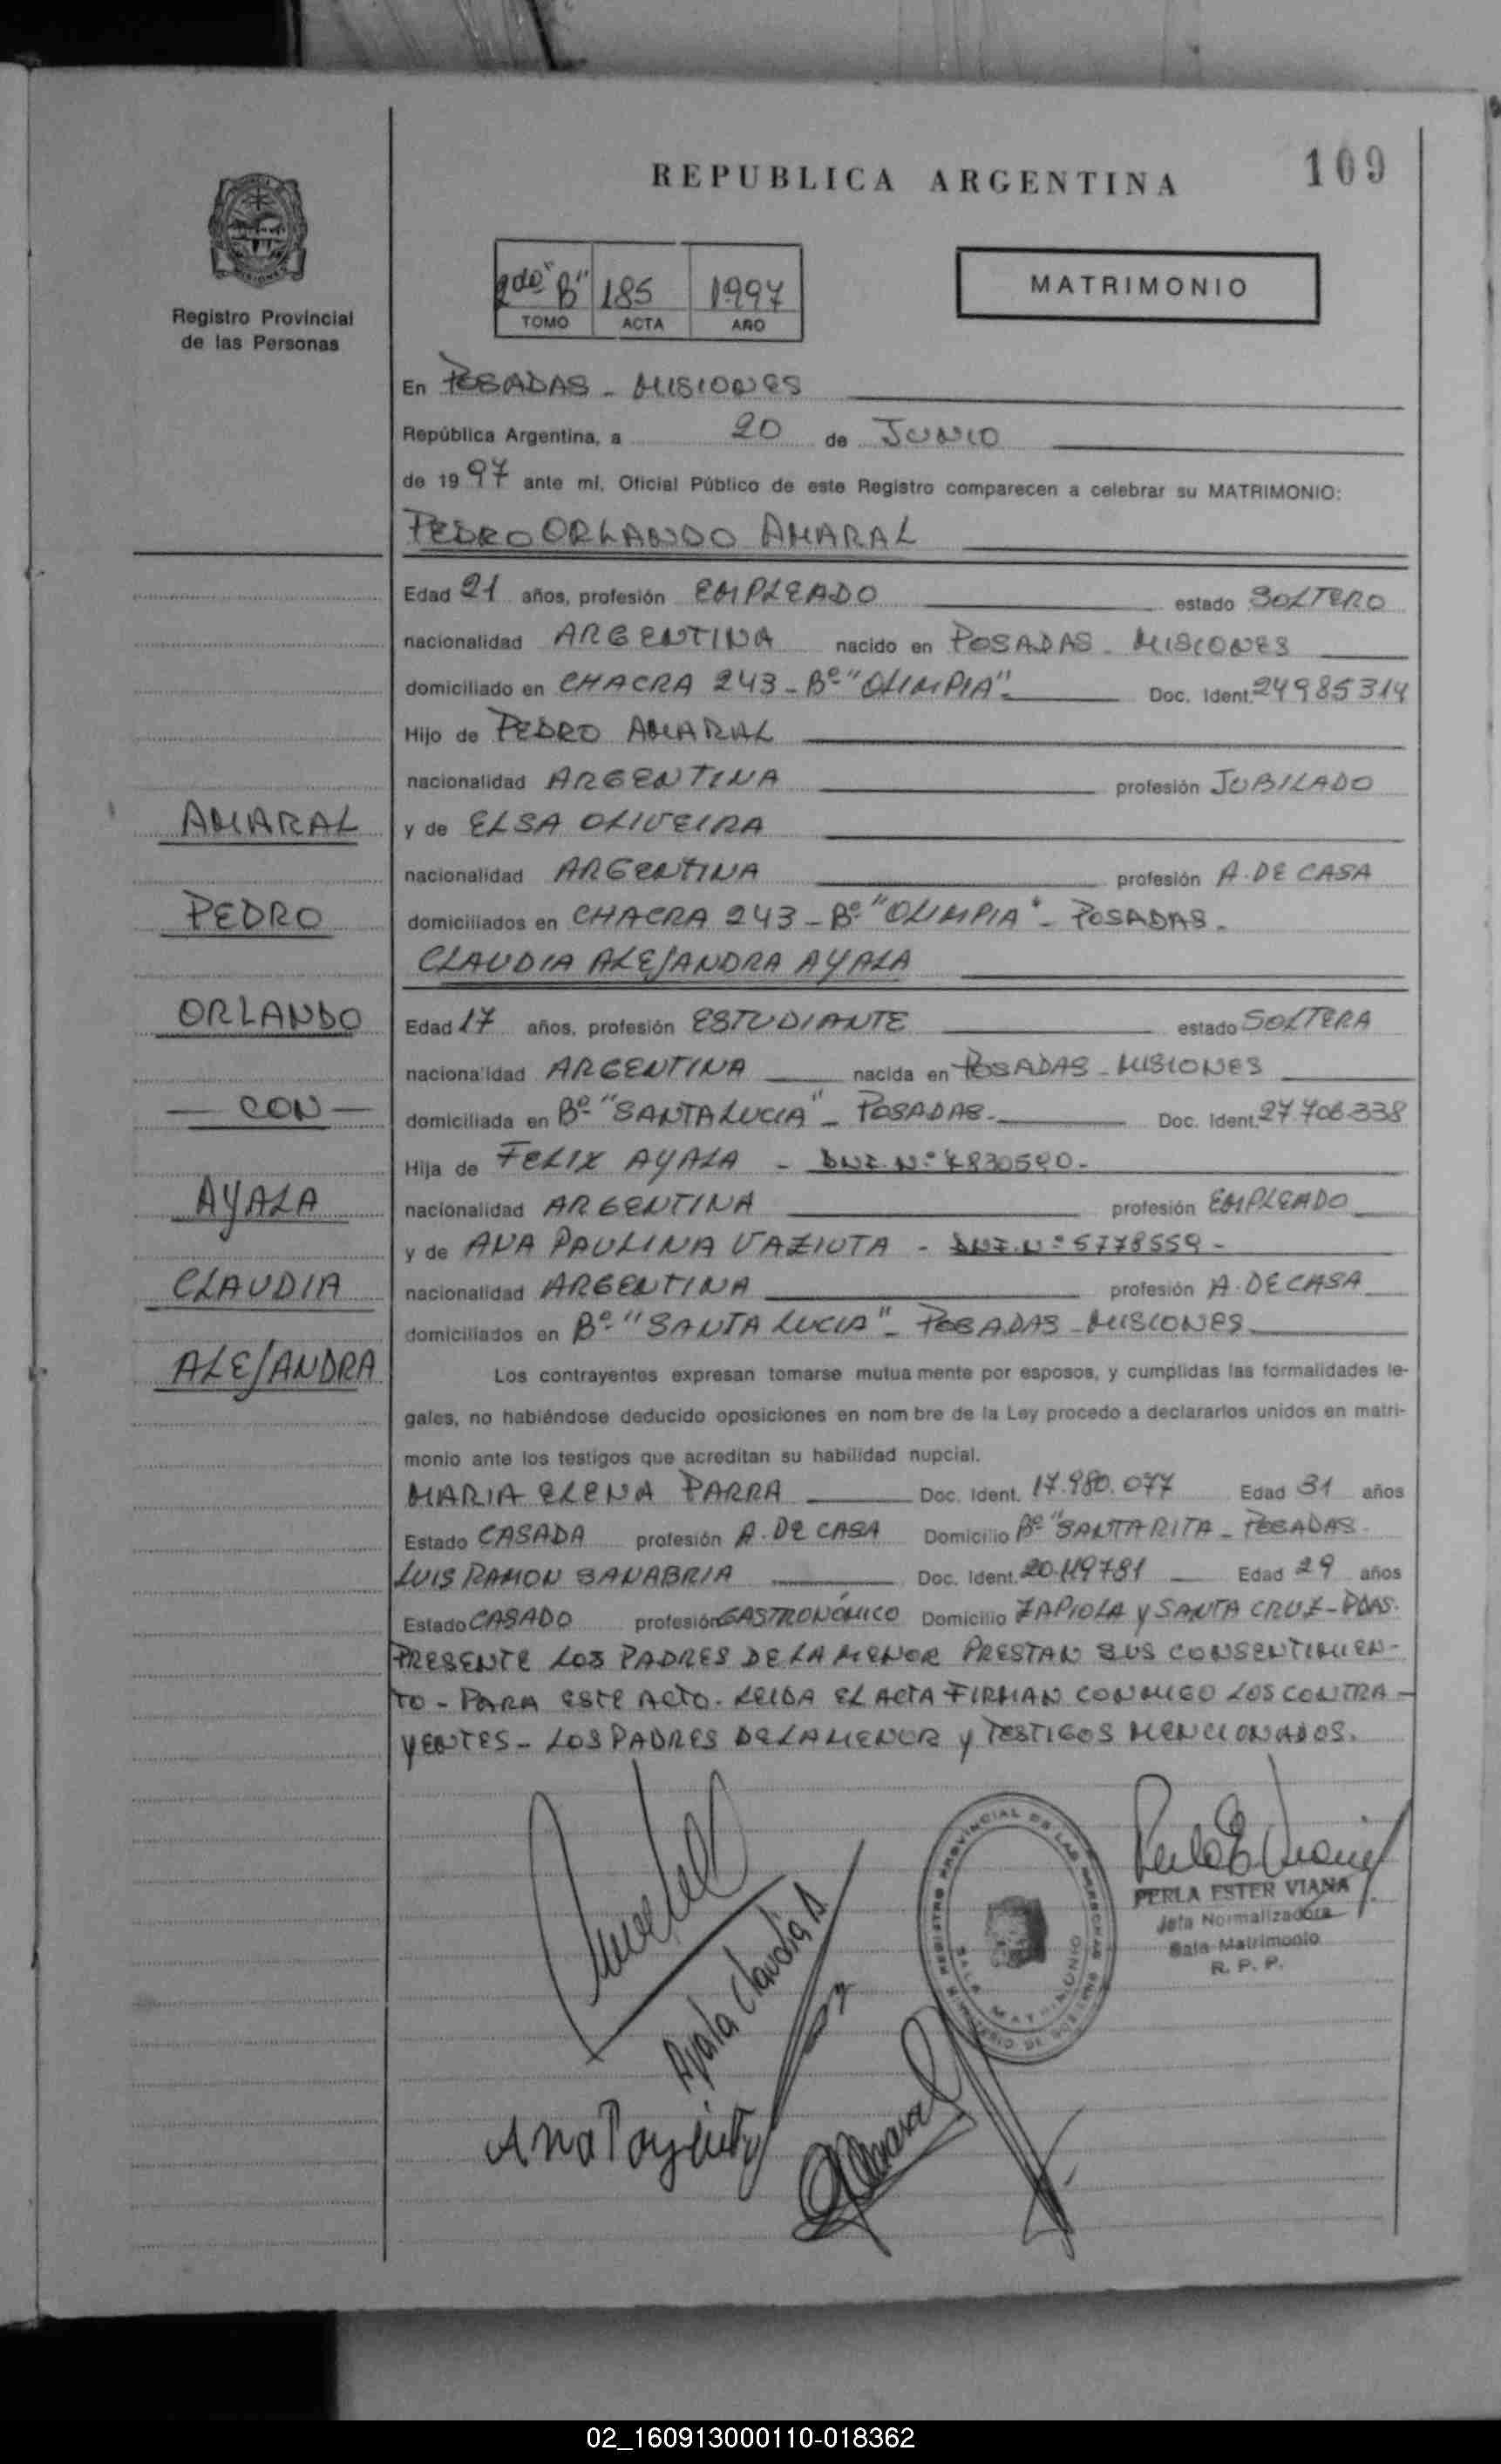 REPUBLICA ARGENTINA
109
Registro Provincial
de las Personas
2do "B" 185 1997
TOMO ACTA AÑO
MATRIMONIO
En POSADAS - MISIONES
República Argentina, a 20 de JUNIO
de 1997 ante mí, Oficial Público de este Registro comparecen a celebrar su MATRIMONIO:
PEDRO ORLANDO AMARAL
Edad 21 años, profesión EMPLEADO estado SOLTERO
nacionalidad ARGENTINA nacido en POSADAS - MISIONES
domiciliado en CHACRA 243 - Bº "OLIMPIA" Doc. Ident. 24985314
Hijo de PEDRO AMARAL
nacionalidad ARGENTINA profesión JUBILADO
y de ELSA OLIVEIRA
nacionalidad ARGENTINA profesión A. DE CASA
domiciliados en CHACRA 243 - Bº "OLIMPIA" - POSADAS.
CLAUDIA ALEJANDRA AYALA
Edad 17 años, profesión ESTUDIANTE estado SOLTERA
nacionalidad ARGENTINA nacida en POSADAS - MISIONES
domiciliada en Bº "SANTA LUCIA" - POSADAS - Doc. Ident. 27.706.338
Hija de FELIX AYALA - DNI. Nº 7830590 -
nacionalidad ARGENTINA profesión EMPLEADO
y de ANA PAULINA VAZIUTA - DNI. Nº 5778559 -
nacionalidad ARGENTINA profesión A. DE CASA
domiciliados en Bº "SANTA LUCIA" - POSADAS - MISIONES
Los contrayentes expresan tomarse mutua mente por esposos, y cumplidas las formalidades le-
gales, no habiéndose deducido oposiciones en nom bre de la Ley procedo a declararlos unidos en matri-
monio ante los testigos que acreditan su habilidad nupcial.
MARIA ELENA PARRA Doc. Ident. 17.980.077 Edad 31 años
Estado CASADA profesión A. DE CASA Domicilio Bº "SANTA RITA - POSADAS.
LUIS RAMON SANABRIA Doc. Ident. 20.119781 Edad 29 años
Estado CASADO profesión GASTRONÓMICO Domicilio ZAPIOLA Y SANTA CRUZ - PDAS.
PRESENTE LOS PADRES DE LA MENOR PRESTAN SUS CONSENTIMIEN-
TO - PARA ESTE ACTO. LEIDA EL ACTA FIRMAN CONMIGO LOS CONTRA-
YENTES - LOS PADRES DE LA MENOR Y TESTIGOS MENCIONADOS.
AMARAL
PEDRO
ORLANDO
- CON -
AYALA
CLAUDIA
ALEJANDRA
Ayala Claudia A
REGISTRO PROVINCIAL DE LAS PERSONAS
SALA MATRIMONIO
PERLA ESTER VIANA
Jefa Normalizadora
Sala Matrimonio
R. P. P.
02_160913000110-018362